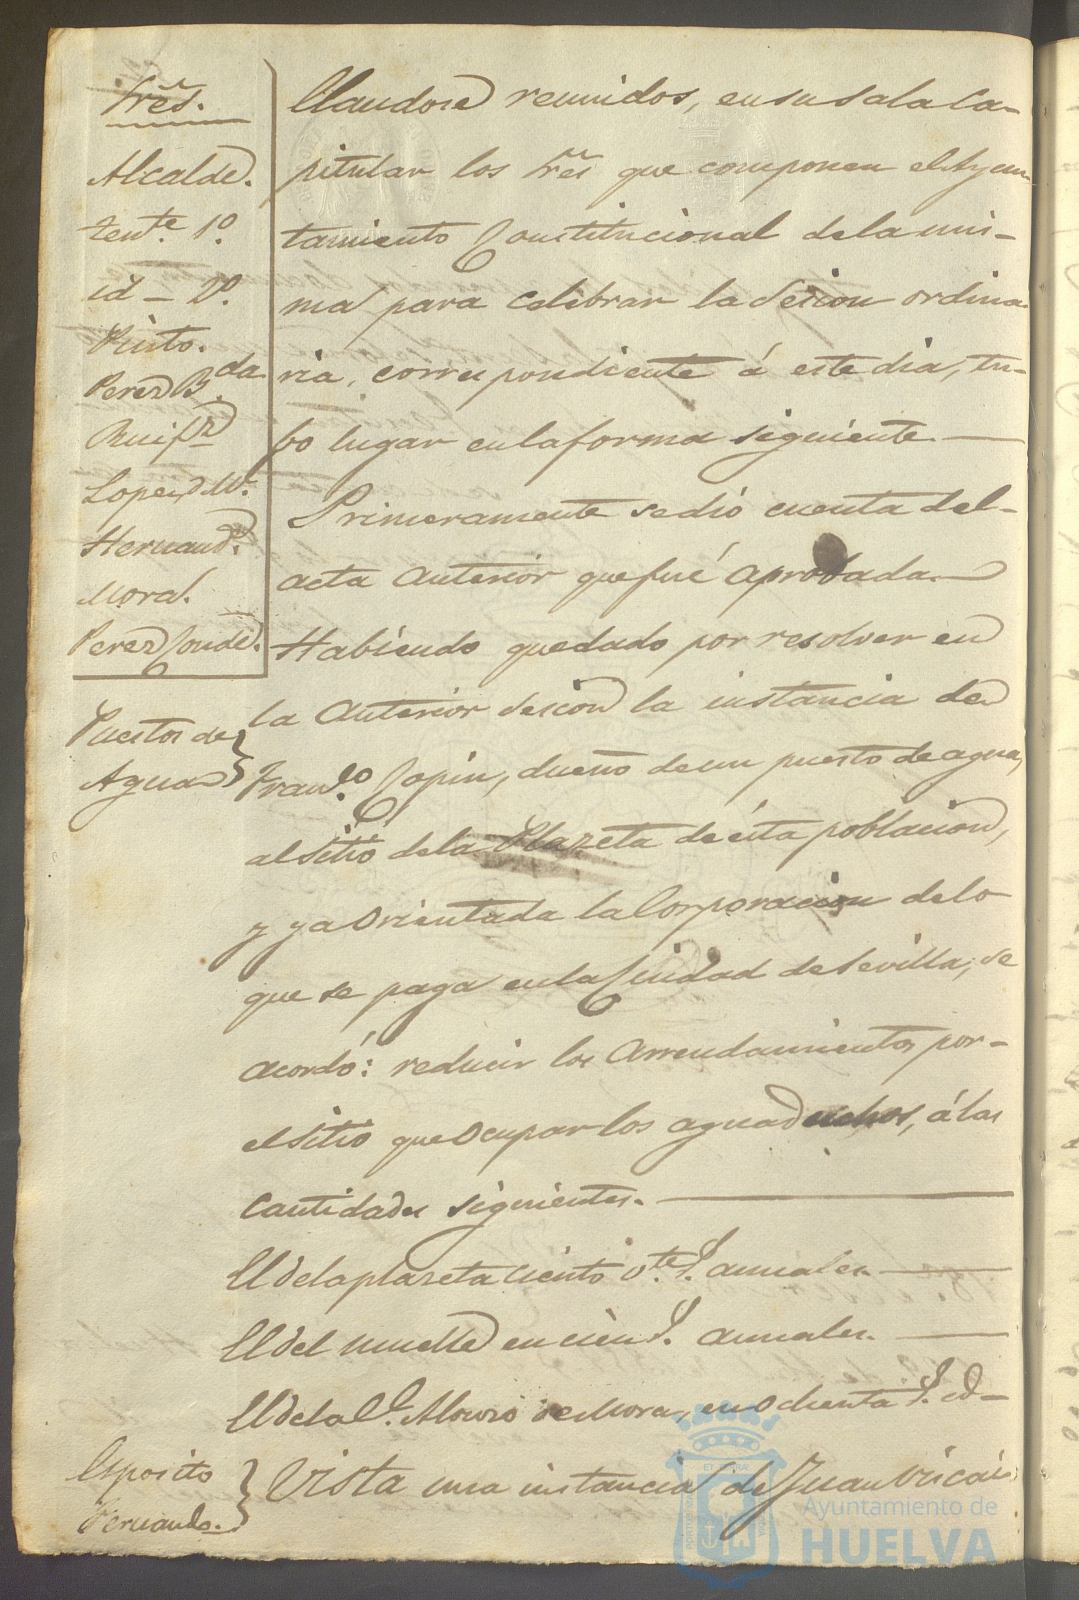 Sres.
Alcalde.
Tente. 1º.
id - 2º.
Pinto.
Perez Bda.
Ruifz
Lopez M.
Hernandz.
Moral.
Perez Conde.
llandose reunidos, en su sala Ca-
pitular los Sres que componen el Ayun-
tamiento Constitucional de la mis-
ma para celebrar la Secion ordina-
ria, correspondiente á este dia, tu-
bo lugar en la forma siguiente.
Primeramente se dió cuenta del-
acta anterior que fué aprobada.
Habiendo quedado por resolver en
Puestos de
Agua
la anterior Secion la instancia de
Franco. Copin, dueño de un puesto de agua,
al sitio de la Plazeta de ésta poblacion,
y ya orientada la Corporacion de lo
que se paga en la Ciudad de Sevilla, se
acordó: reducir los arrendamientos por-
el sitio que ocupar los aguaduchos, á las
cantidades siguientes.
El de la plazeta ciento vte. r. anuales.
El del muelle en cien r. anuales.
El de la C. Alonso de Mora, en ochenta r. id-
Esposito
Fernando.
Vista una instancia de Juan Viscai
Ayuntamiento de
HUELVA